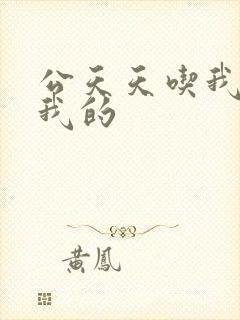 公天天喫我
我的
黃鳳